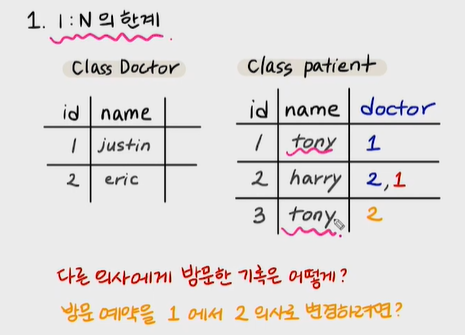 1. 1:N의 한계
Class Doctor
id name
1 justin
2 eric
Class patient
id name doctor
1 tony 1
2 harry 2,1
3 tony 2
다른 의사에게 방문한 기록은 어떻게?
방문 예약을 1에서 2 의사로 변경하려면?